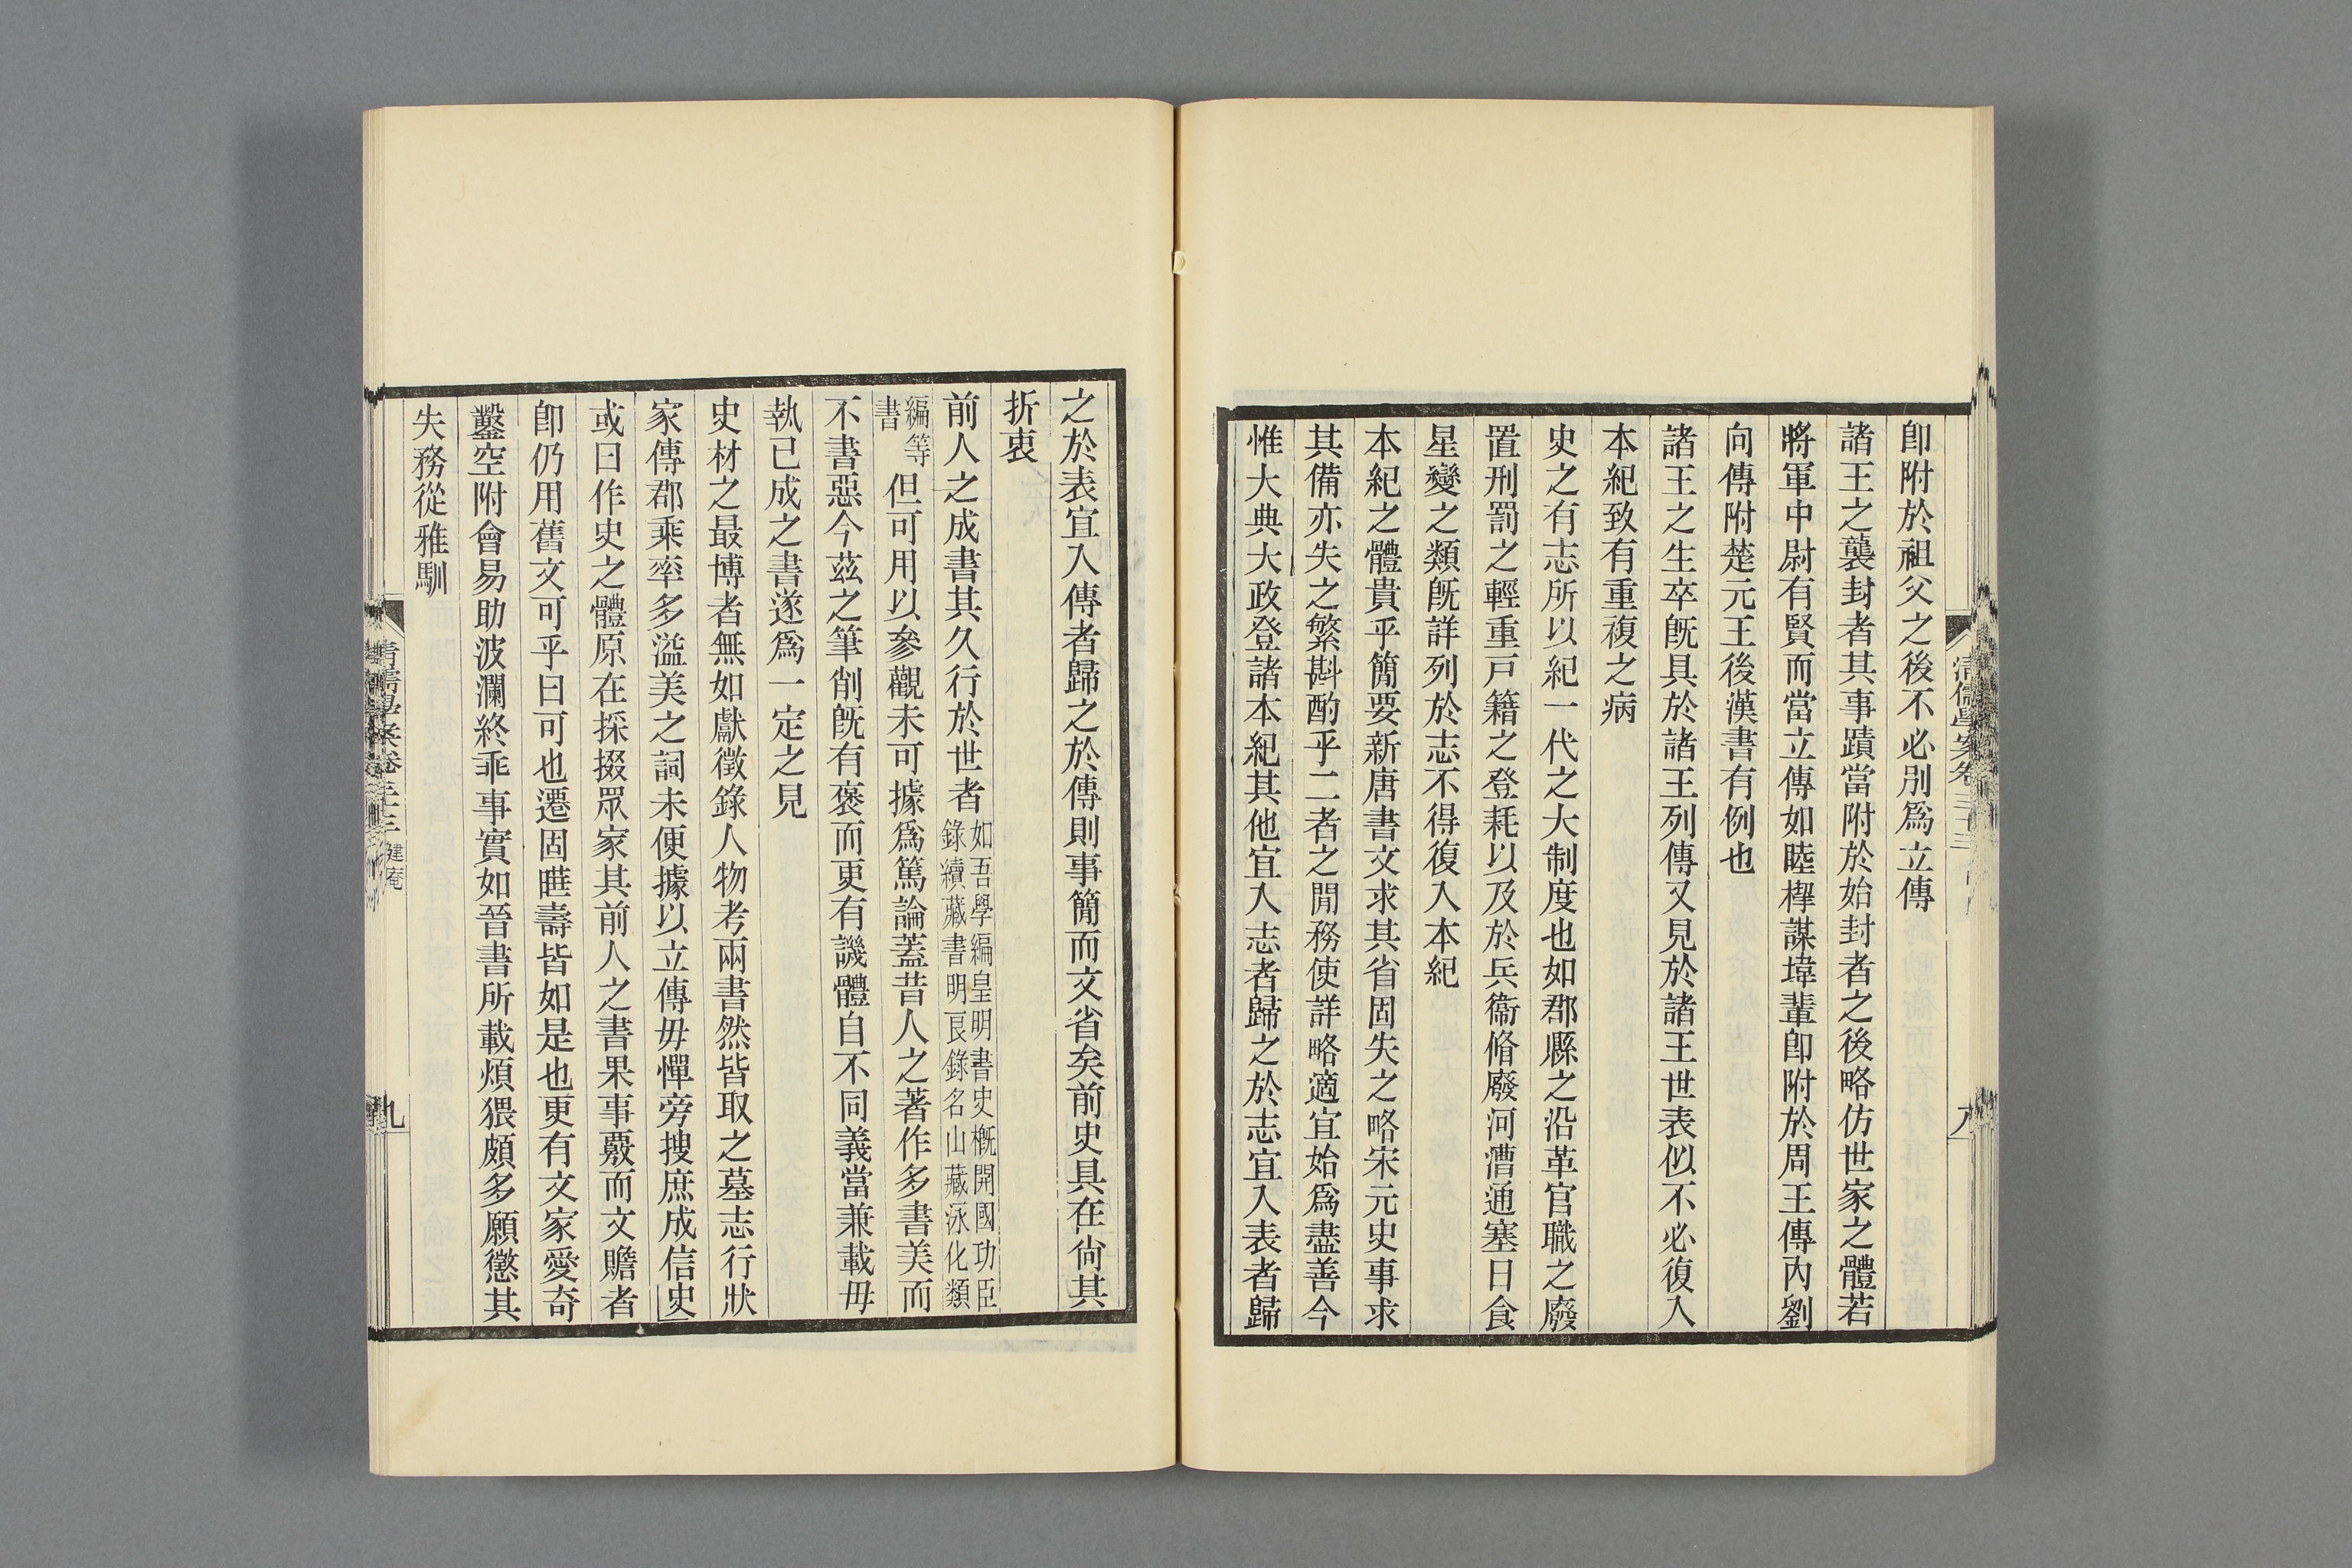 清儒學案卷三十三
八
卽附於祖父之後不必別爲立傳
諸王之襲封者其事蹟當附於始封者之後略仿世家之體若
將軍中尉有賢而當立傳如睦㮮謀㙔輩卽附於周王傳內劉
向傳附楚元王後漢書有例也
諸王之生卒旣具於諸王列傳又見於諸王世表似不必復入
本紀致有重複之病
史之有志所以紀一代之大制度也如郡縣之沿革官職之廢
置刑罰之輕重戸籍之登耗以及於兵衞脩廢河漕通塞日食
星變之類旣詳列於志不得復入本紀
本紀之體貴乎簡要新唐書文求其省固失之略宋元史事求
其備亦失之繁斟酌乎二者之閒務使詳略適宜始爲盡善今
惟大典大政登諸本紀其他宜入志者歸之於志宜入表者歸
之於表宜入傳者歸之於傳則事簡而文省矣前史具在尙其
折衷
前人之成書其久行於世者如吾學編皇明書史槪開國功臣
錄續藏書明良錄名山藏泳化類
編等
書
但可用以參觀未可據爲篤論蓋昔人之著作多書美而
不書惡今茲之筆削旣有褒而更有譏體自不同義當兼載毋
執已成之書遂爲一定之見
史材之最博者無如獻徵錄人物考兩書然皆取之墓志行狀
家傳郡乘率多溢美之詞未便據以立傳毋憚旁搜庶成信史
或曰作史之體原在採掇眾家其前人之書果事覈而文贍者
卽仍用舊文可乎曰可也遷固曄壽皆如是也更有文家愛奇
鑿空附會易助波瀾終乖事實如晉書所載煩猥頗多願懲其
失務從雅馴
清儒學案卷三十三 健庵
九